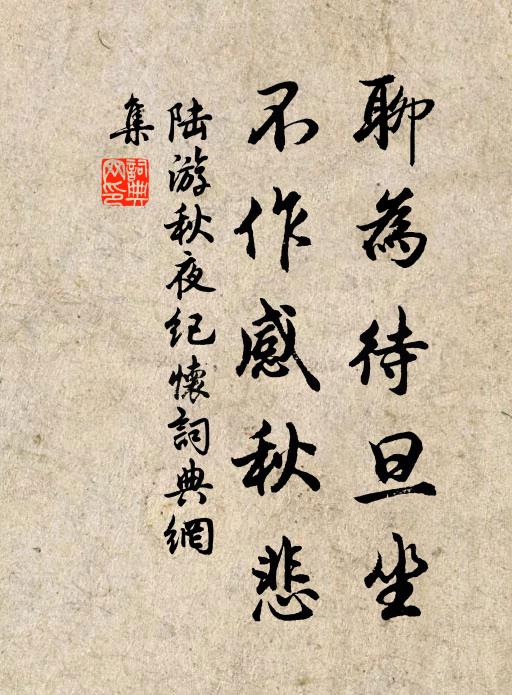 聊為待旦坐
不作感秋悲
陆游秋夜纪懷詞典網
集
詞典網印